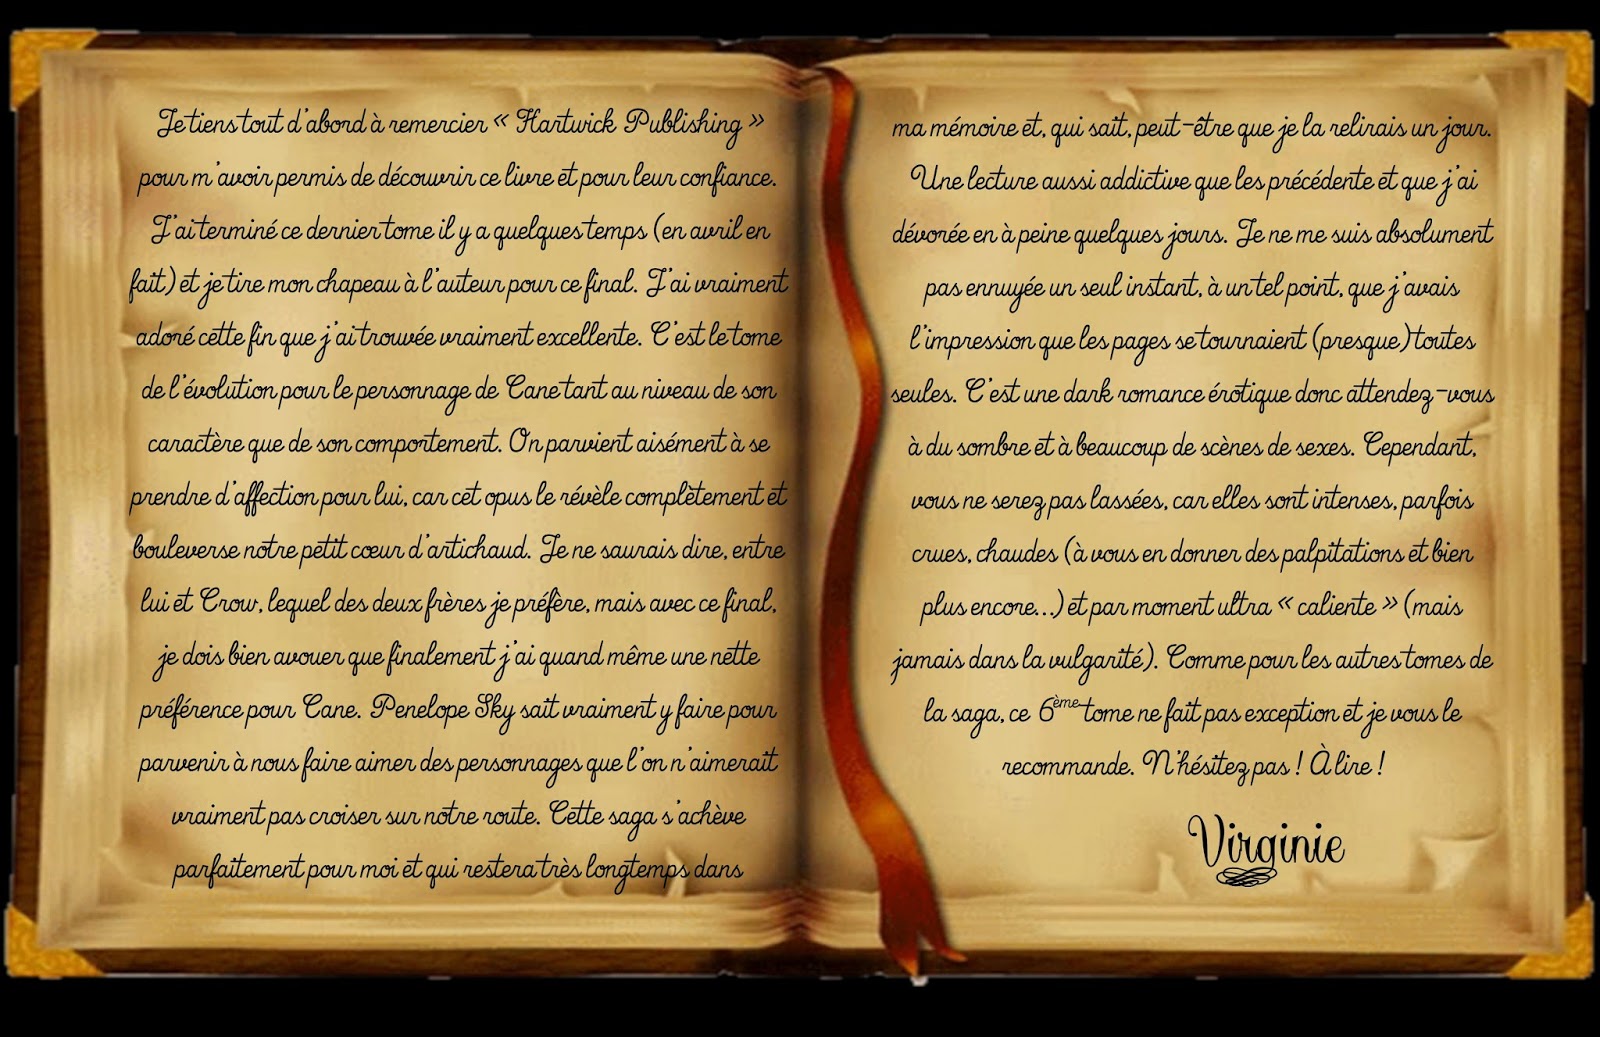 Je tiens tout d'abord à remercier « Hartwick Publishing »
pour m'avoir permis de découvrir ce livre et pour leur confiance.
J'ai terminé ce dernier tome il y a quelques temps (en avril en
fait) et je tire mon chapeau à l'auteur pour ce final. J'ai vraiment
adoré cette fin que j'ai trouvée vraiment excellente. C'est le tome
de l'évolution pour le personnage de Cane tant au niveau de son
caractère que de son comportement. On parvient aisément à se
prendre d'affection pour lui, car cet opus le révèle complètement et
bouleverse notre petit cœur d'artichaud. Je ne saurais dire, entre
lui et Crow, lequel des deux frères je préfère, mais avec ce final,
je dois bien avouer que finalement j'ai quand même une nette
préférence pour Cane. Penelope Sky sait vraiment y faire pour
parvenir à nous faire aimer des personnages que l'on n'aimerait
vraiment pas croiser sur notre route. Cette saga s'achève
parfaitement pour moi et qui restera très longtemps dans
ma mémoire et, qui sait, peut-être que je la relirais un jour.
Une lecture aussi addictive que les précédente et que j'ai
dévorée en à peine quelques jours. Je ne me suis absolument
pas ennuyée un seul instant, à un tel point, que j'avais
l'impression que les pages se tournaient (presque) toutes
seules. C'est une dark romance érotique donc attendez-vous
à du sombre et à beaucoup de scènes de sexes. Cependant,
vous ne serez pas lassées, car elles sont intenses, parfois
crues, chaudes (à vous en donner des palpitations et bien
plus encore...) et par moment ultra « caliente » (mais
jamais dans la vulgarité). Comme pour les autres tomes de
la saga, ce 6ème tome ne fait pas exception et je vous le
recommande. N'hésitez pas ! À lire !
Virginie